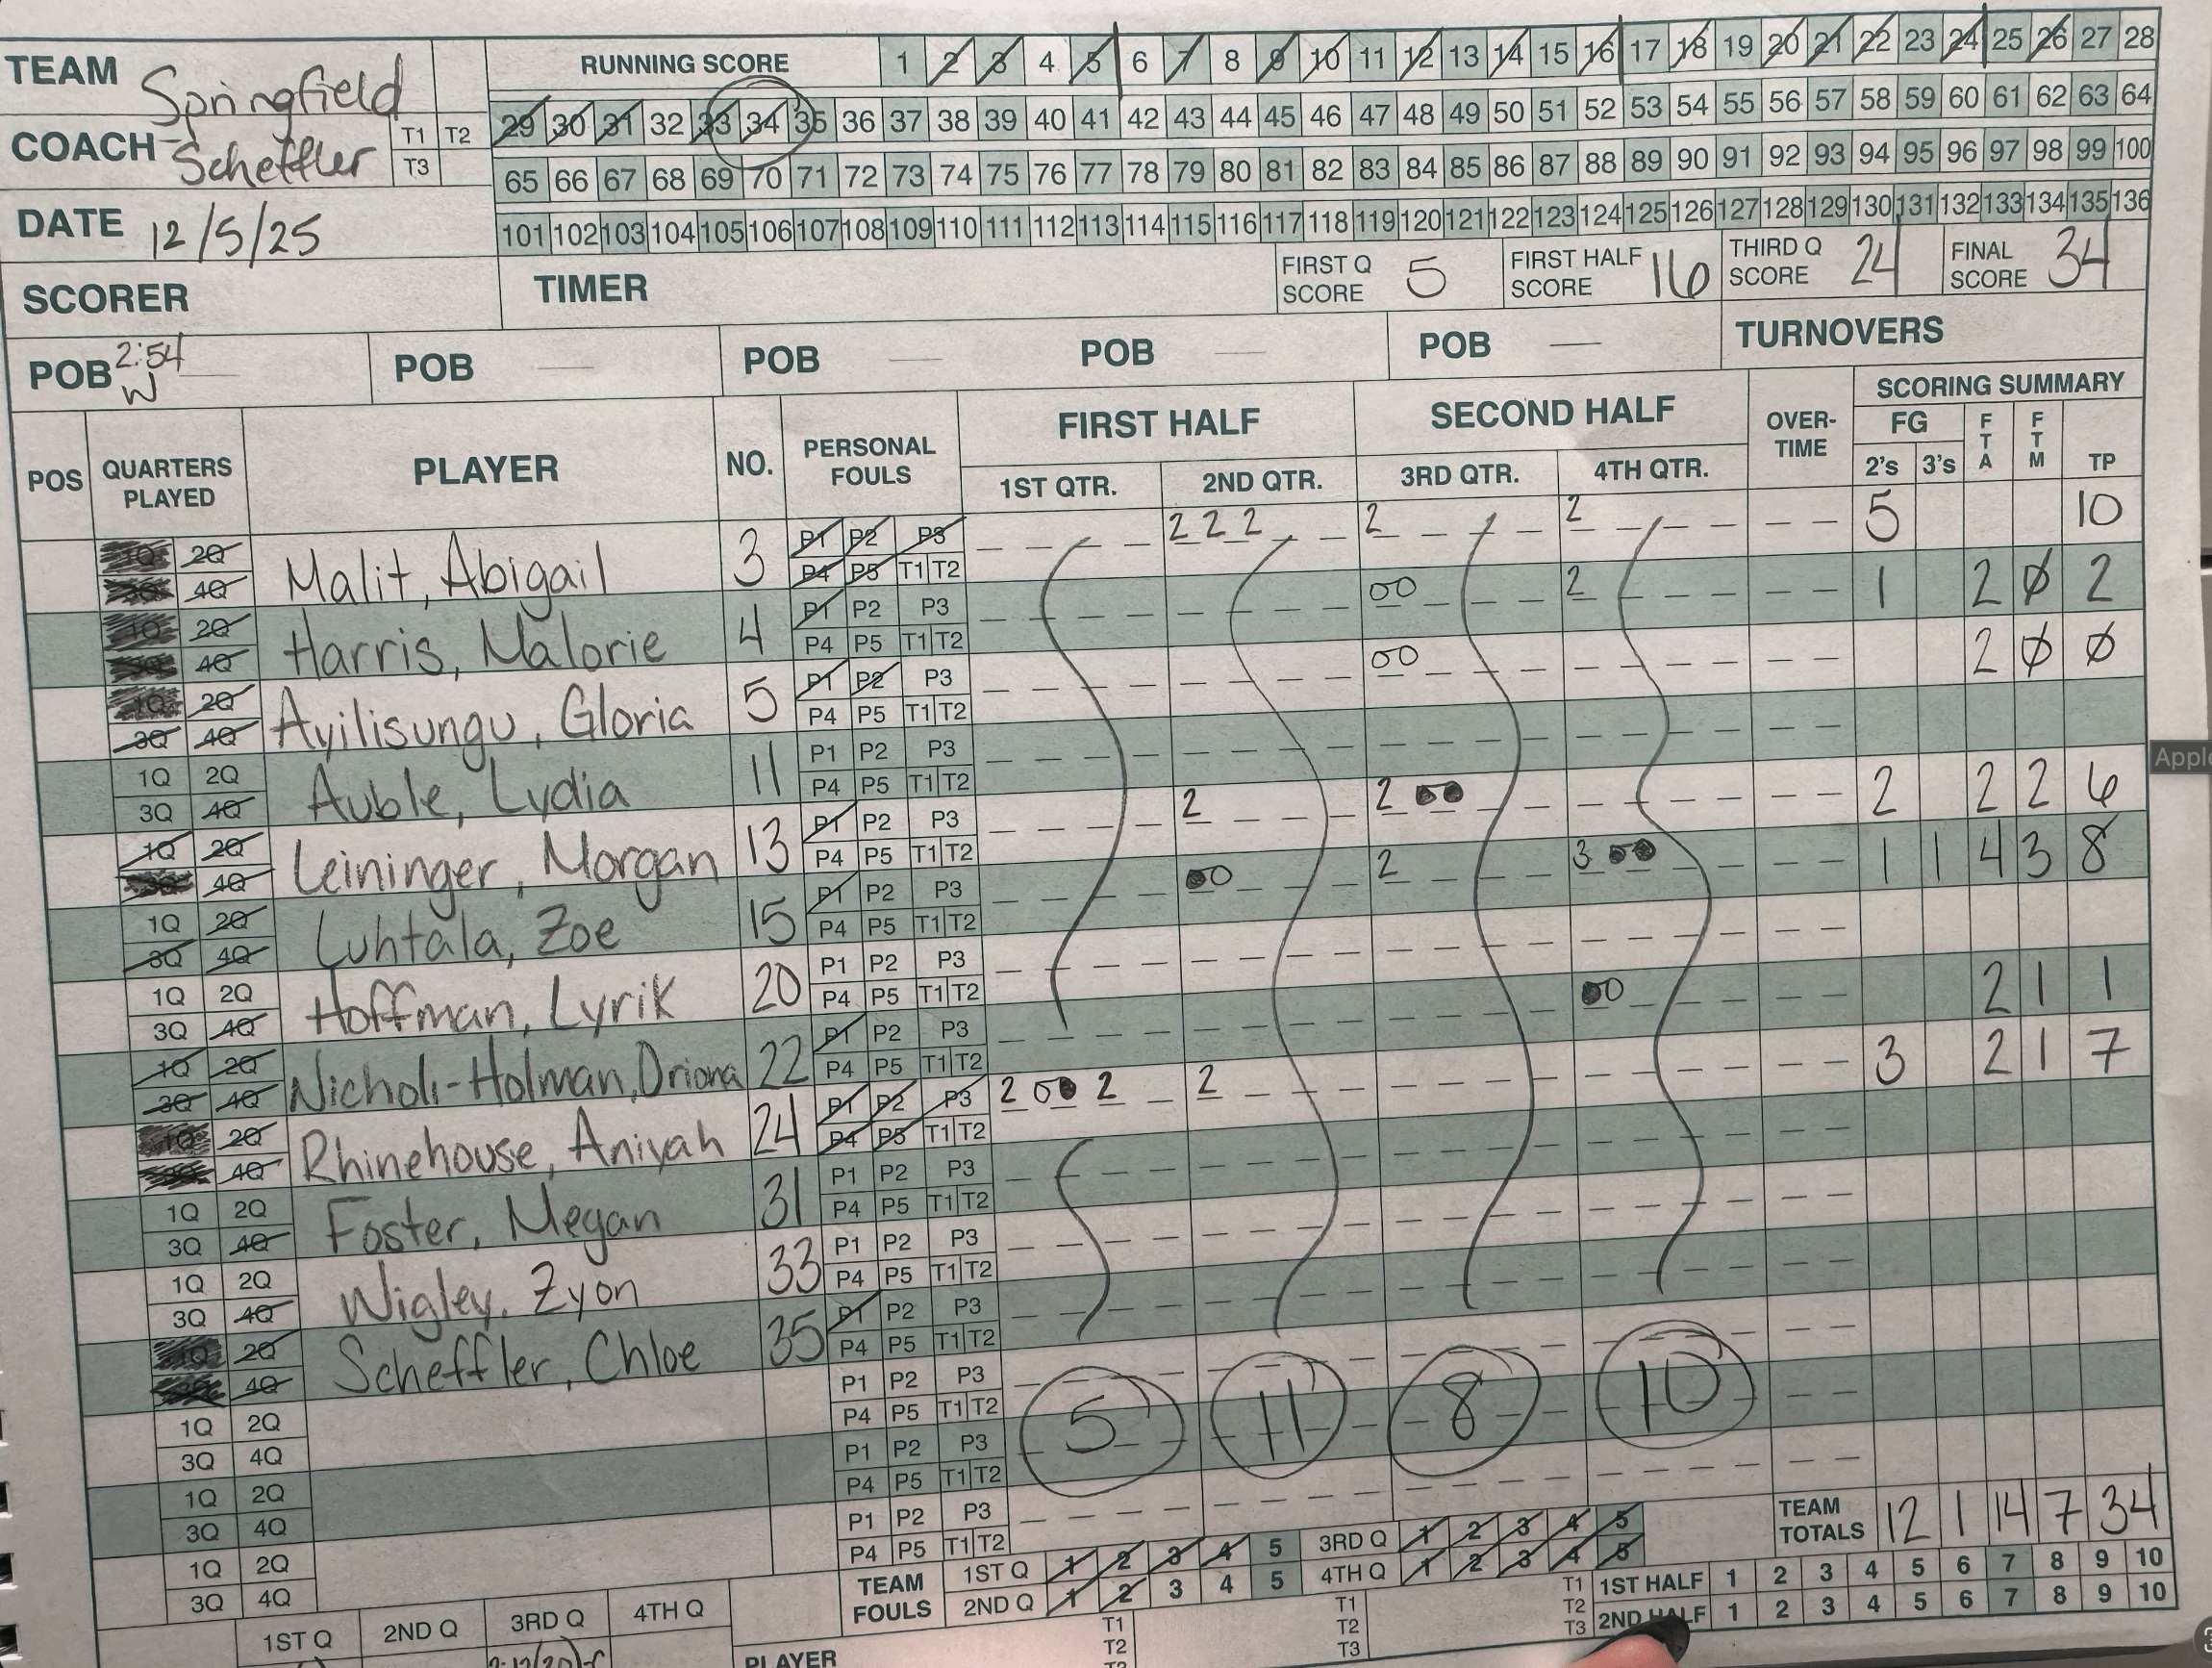 TEAM Springfield
RUNNING SCORE 1 2 3 4 5 6 7 8 9 10 11 12 13 14 15 16 17 18 19 20 21 22 23 24 25 26 27 28
29 30 31 32 33 34 35 36 37 38 39 40 41 42 43 44 45 46 47 48 49 50 51 52 53 54 55 56 57 58 59 60 61 62 63 64
COACH Scheffler T1 T2 T3
65 66 67 68 69 70 71 72 73 74 75 76 77 78 79 80 81 82 83 84 85 86 87 88 89 90 91 92 93 94 95 96 97 98 99 100
DATE 12/5/25
101 102 103 104 105 106 107 108 109 110 111 112 113 114 115 116 117 118 119 120 121 122 123 124 125 126 127 128 129 130 131 132 133 134 135 136
SCORER TIMER FIRST Q SCORE 5 FIRST HALF SCORE 16 THIRD Q SCORE 24 FINAL SCORE 34
POB 2:54 W POB POB POB POB TURNOVERS
POS QUARTERS PLAYED PLAYER NO. PERSONAL FOULS FIRST HALF SECOND HALF OVER-TIME SCORING SUMMARY
1ST QTR. 2ND QTR. 3RD QTR. 4TH QTR. FG 2's 3's FTA FTM TP
1Q 2Q 3Q 4Q Malit, Abigail 3 P1 P2 P3 P4 P5 T1 T2 2 2 2 2 2 5 10
1Q 2Q 3Q 4Q Harris, Malorie 4 P1 P2 P3 P4 P5 T1 T2 00 2 1 2 Ø 2
1Q 2Q 3Q 4Q Ayilisungu, Gloria 5 P1 P2 P3 P4 P5 T1 T2 00 2 Ø Ø
1Q 2Q 3Q 4Q Auble, Lydia 11 P1 P2 P3 P4 P5 T1 T2
1Q 2Q 3Q 4Q Leininger, Morgan 13 P1 P2 P3 P4 P5 T1 T2 2 2 ●● 2 2 2 6
1Q 2Q 3Q 4Q Luhtala, Zoe 15 P1 P2 P3 P4 P5 T1 T2 ●0 2 3 ●● 1 1 4 3 8
1Q 2Q 3Q 4Q Hoffman, Lyrik 20 P1 P2 P3 P4 P5 T1 T2
1Q 2Q 3Q 4Q Nicholi-Holman, Driona 22 P1 P2 P3 P4 P5 T1 T2 ●0 2 1 1
1Q 2Q 3Q 4Q Rhinehouse, Aniyah 24 P1 P2 P3 P4 P5 T1 T2 2 0● 2 2 3 2 1 7
1Q 2Q 3Q 4Q Foster, Megan 31 P1 P2 P3 P4 P5 T1 T2
1Q 2Q 3Q 4Q Wigley, Zyon 33 P1 P2 P3 P4 P5 T1 T2
1Q 2Q 3Q 4Q Scheffler, Chloe 35 P1 P2 P3 P4 P5 T1 T2
1Q 2Q 3Q 4Q P1 P2 P3 P4 P5 T1 T2 5 11 8 10
1Q 2Q 3Q 4Q P1 P2 P3 P4 P5 T1 T2
1Q 2Q 3Q 4Q P1 P2 P3 P4 P5 T1 T2
TEAM TOTALS 12 1 14 7 34
TEAM FOULS 1ST Q 1 2 3 4 5 3RD Q 1 2 3 4 5
2ND Q 1 2 3 4 5 4TH Q 1 2 3 4 5
1ST HALF 1 2 3 4 5 6 7 8 9 10
2ND HALF 1 2 3 4 5 6 7 8 9 10
1ST Q 2ND Q 3RD Q 4TH Q
PLAYER T1 T2 T1 T2 T3 T1 T2 T3